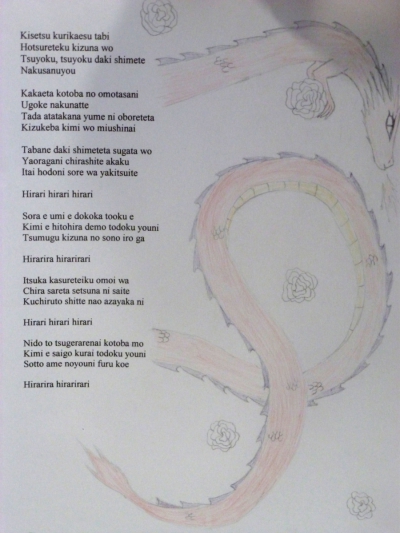 Kisetsu kurikaesu tabi
Hotsureteku kizuna wo
Tsuyoku, tsuyoku daki shimete
Nakusanuyou
Kakaeta kotoba no omotasani
Ugoke nakunatte
Tada atatakana yume ni oboreteta
Kizukeba kimi wo miushinai
Tabane daki shimeteta sugata wo
Yaoragani chirashite akaku
Itai hodoni sore wa yakitsuite
Hirari hirari hirari
Sora e umi e dokoka tooku e
Kimi e hitohira demo todoku youni
Tsumugu kizuna no sono iro ga
Hirarira hirarirari
Itsuka kasureteiku omoi wa
Chira sareta setsuna ni saite
Kuchiruto shitte nao azayaka ni
Hirari hirari hirari
Nido to tsugerarenai kotoba mo
Kimi e saigo kurai todoku youni
Sotto ame noyouni furu koe
Hirarira hirarirari